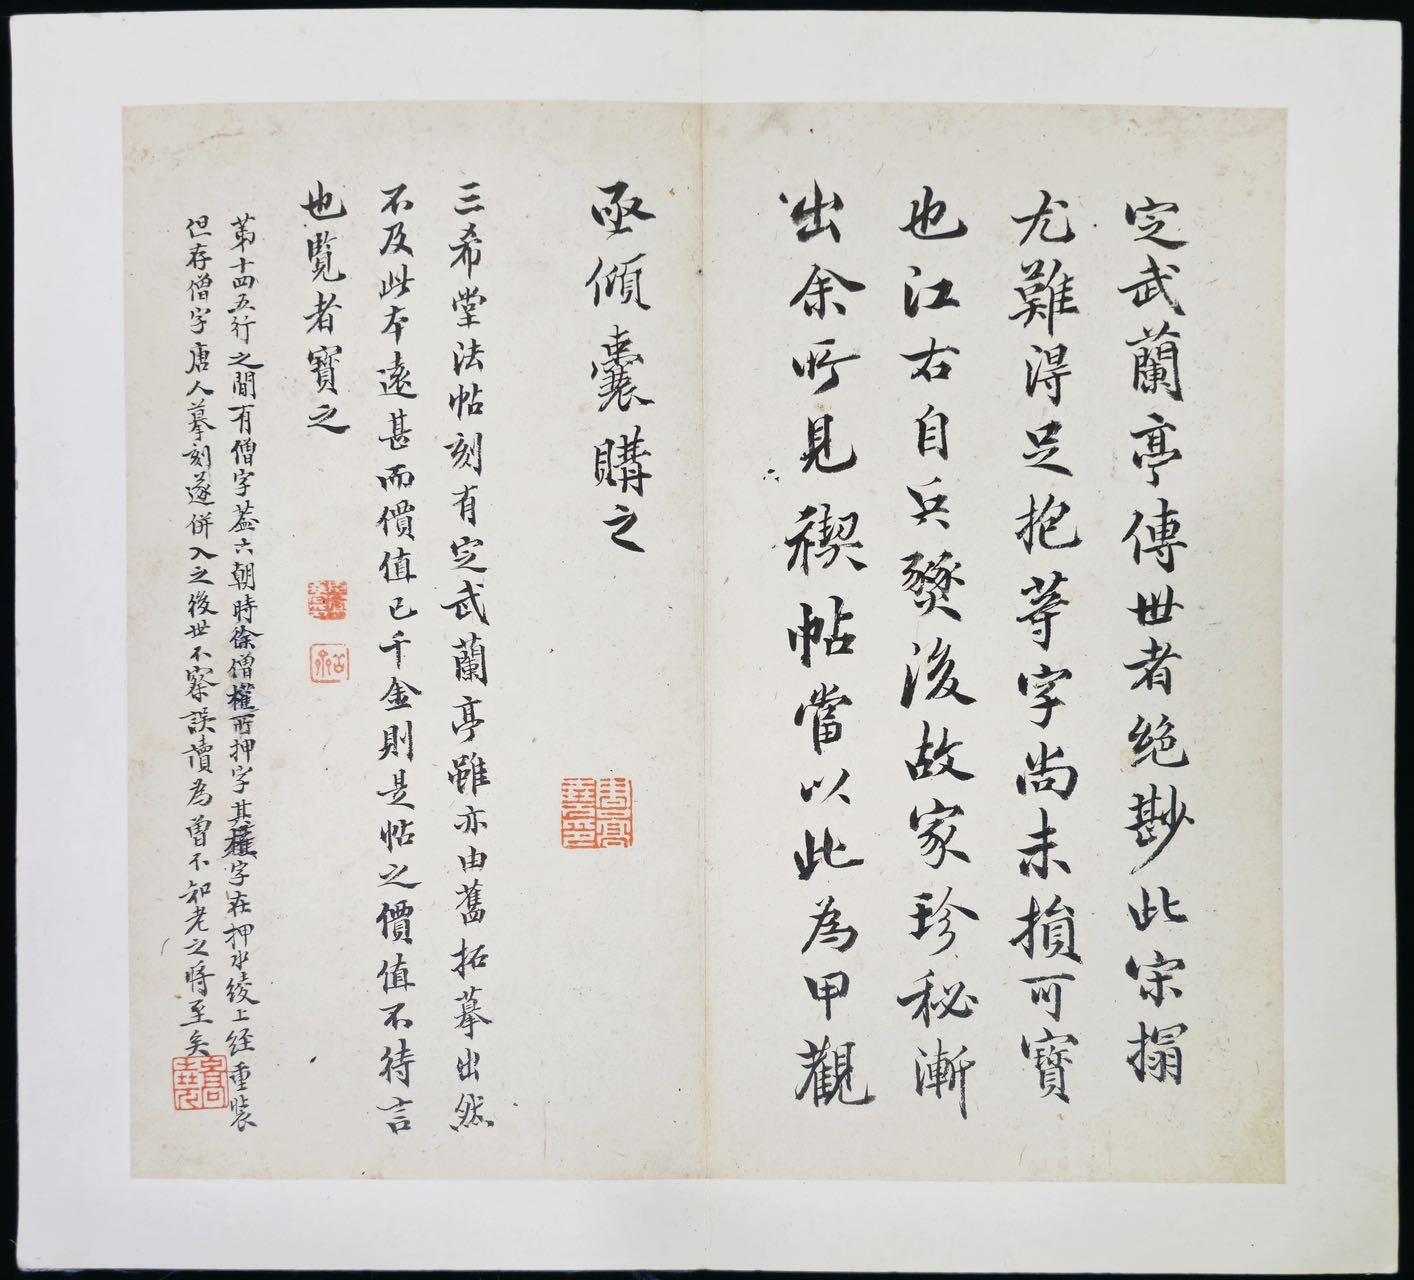 定武蘭亭傳世者絶尠此宋搨
尤難得足抱等字尚未損可寶
也江右自兵燹後故家珍秘漸
出余所見禊帖當以此為甲觀
亟傾囊購之
三希堂法帖刻有定武蘭亭雖亦由舊拓摹出然
不及此本遠甚而價值已千金則是帖之價值不待言
也覽者寶之
第十四五行之間有僧字蓋六朝時徐僧權所押字其權字在押水綾上經重裝
但存僧字唐人摹刻遂併入之後世不察誤讀為曾不知老之將至矣